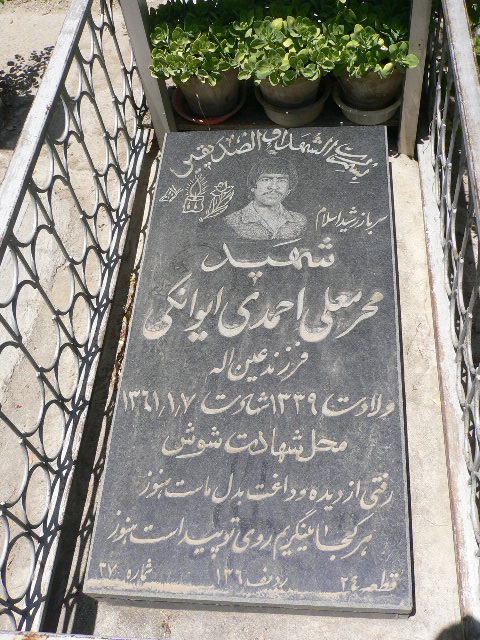 بسم رب الشهداء و الصدیقین
سرباز رشید اسلام
شهید
محرمعلی احمدی ایوانکی
فرزند عین اله
ولادت ۱۳۳۹ شهادت ۱۳۶۱/۱/۷
محل شهادت شوش
رفتی از دیده و داغت بدل ماست هنوز
هر کجا مینگریم روی تو پیداست هنوز
قطعه ۲۴ ردیف ۱۳۶ شماره ۳۷